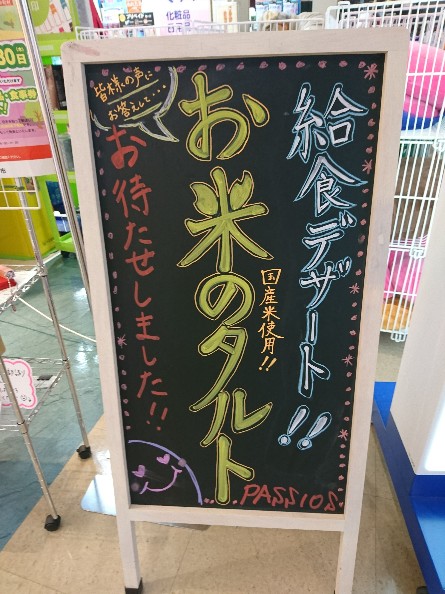 給食デザート!!
お米のタルト
国産米使用!!
皆様の声に
お答えして...
お待たせしました!!
PASSIOS
化粧品